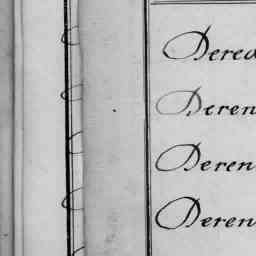 Dered
Deren
Deren
Deren